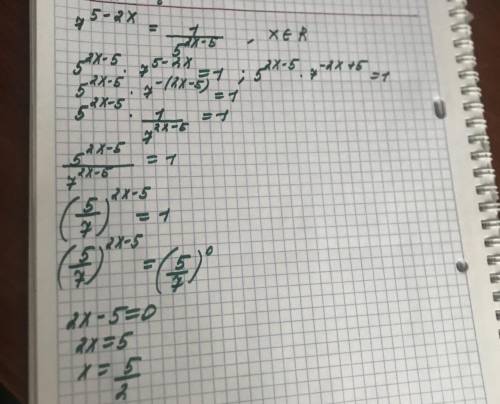 7^{5-2x} = \frac{1}{5^{2x-5}}, x∈R
5^{2x-5} · 7^{5-2x} = 1 ; 5^{2x-5} · 7^{-2x+5} = 1
5^{2x-5} · 7^{-(2x-5)} = 1
5^{2x-5} · \frac{1}{7^{2x-5}} = 1
\frac{5^{2x-5}}{7^{2x-5}} = 1
(\frac{5}{7})^{2x-5} = 1
(\frac{5}{7})^{2x-5} = (\frac{5}{7})^0
2x-5=0
2x=5
x = \frac{5}{2}